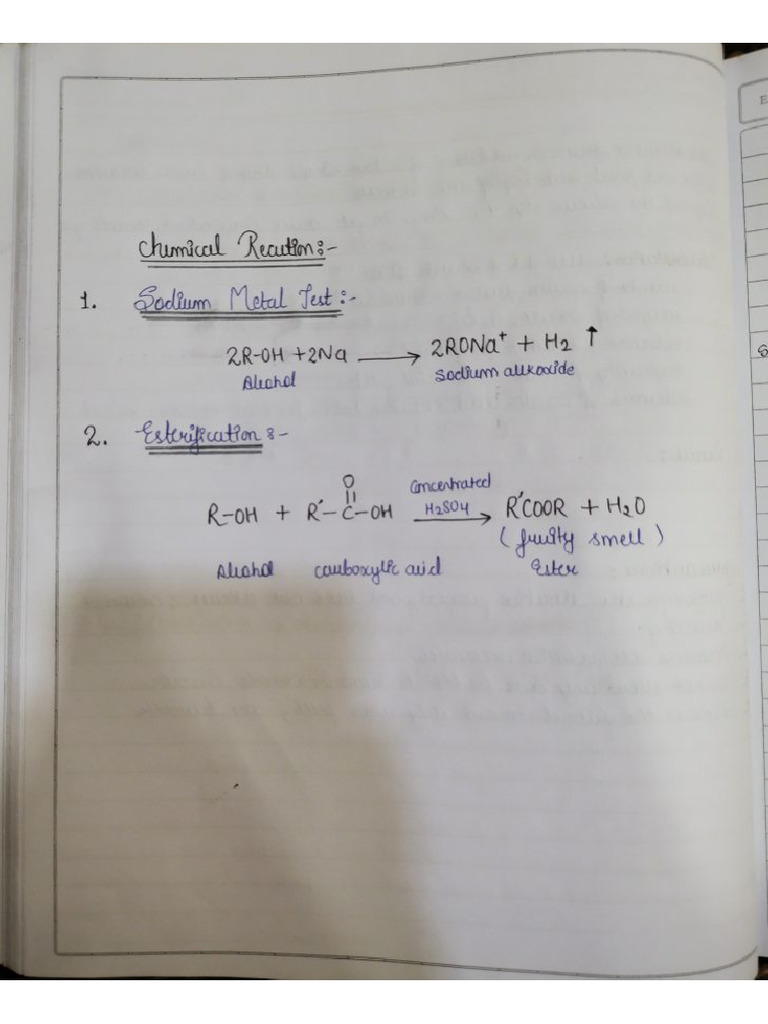 Chemical Recution:-
1. Sodium Metal Test:-
2R-OH + 2Na ⟶ 2RONa⁺ + H2 ↑
Alcohol Sodium alkoxide
2. Esterification:-
O
||
R-OH + R'-C-OH ⟶ R'COOR + H2O
Concentrated
H2SO4
(fruity smell)
Alcohol carboxylic acid Ester
E
S